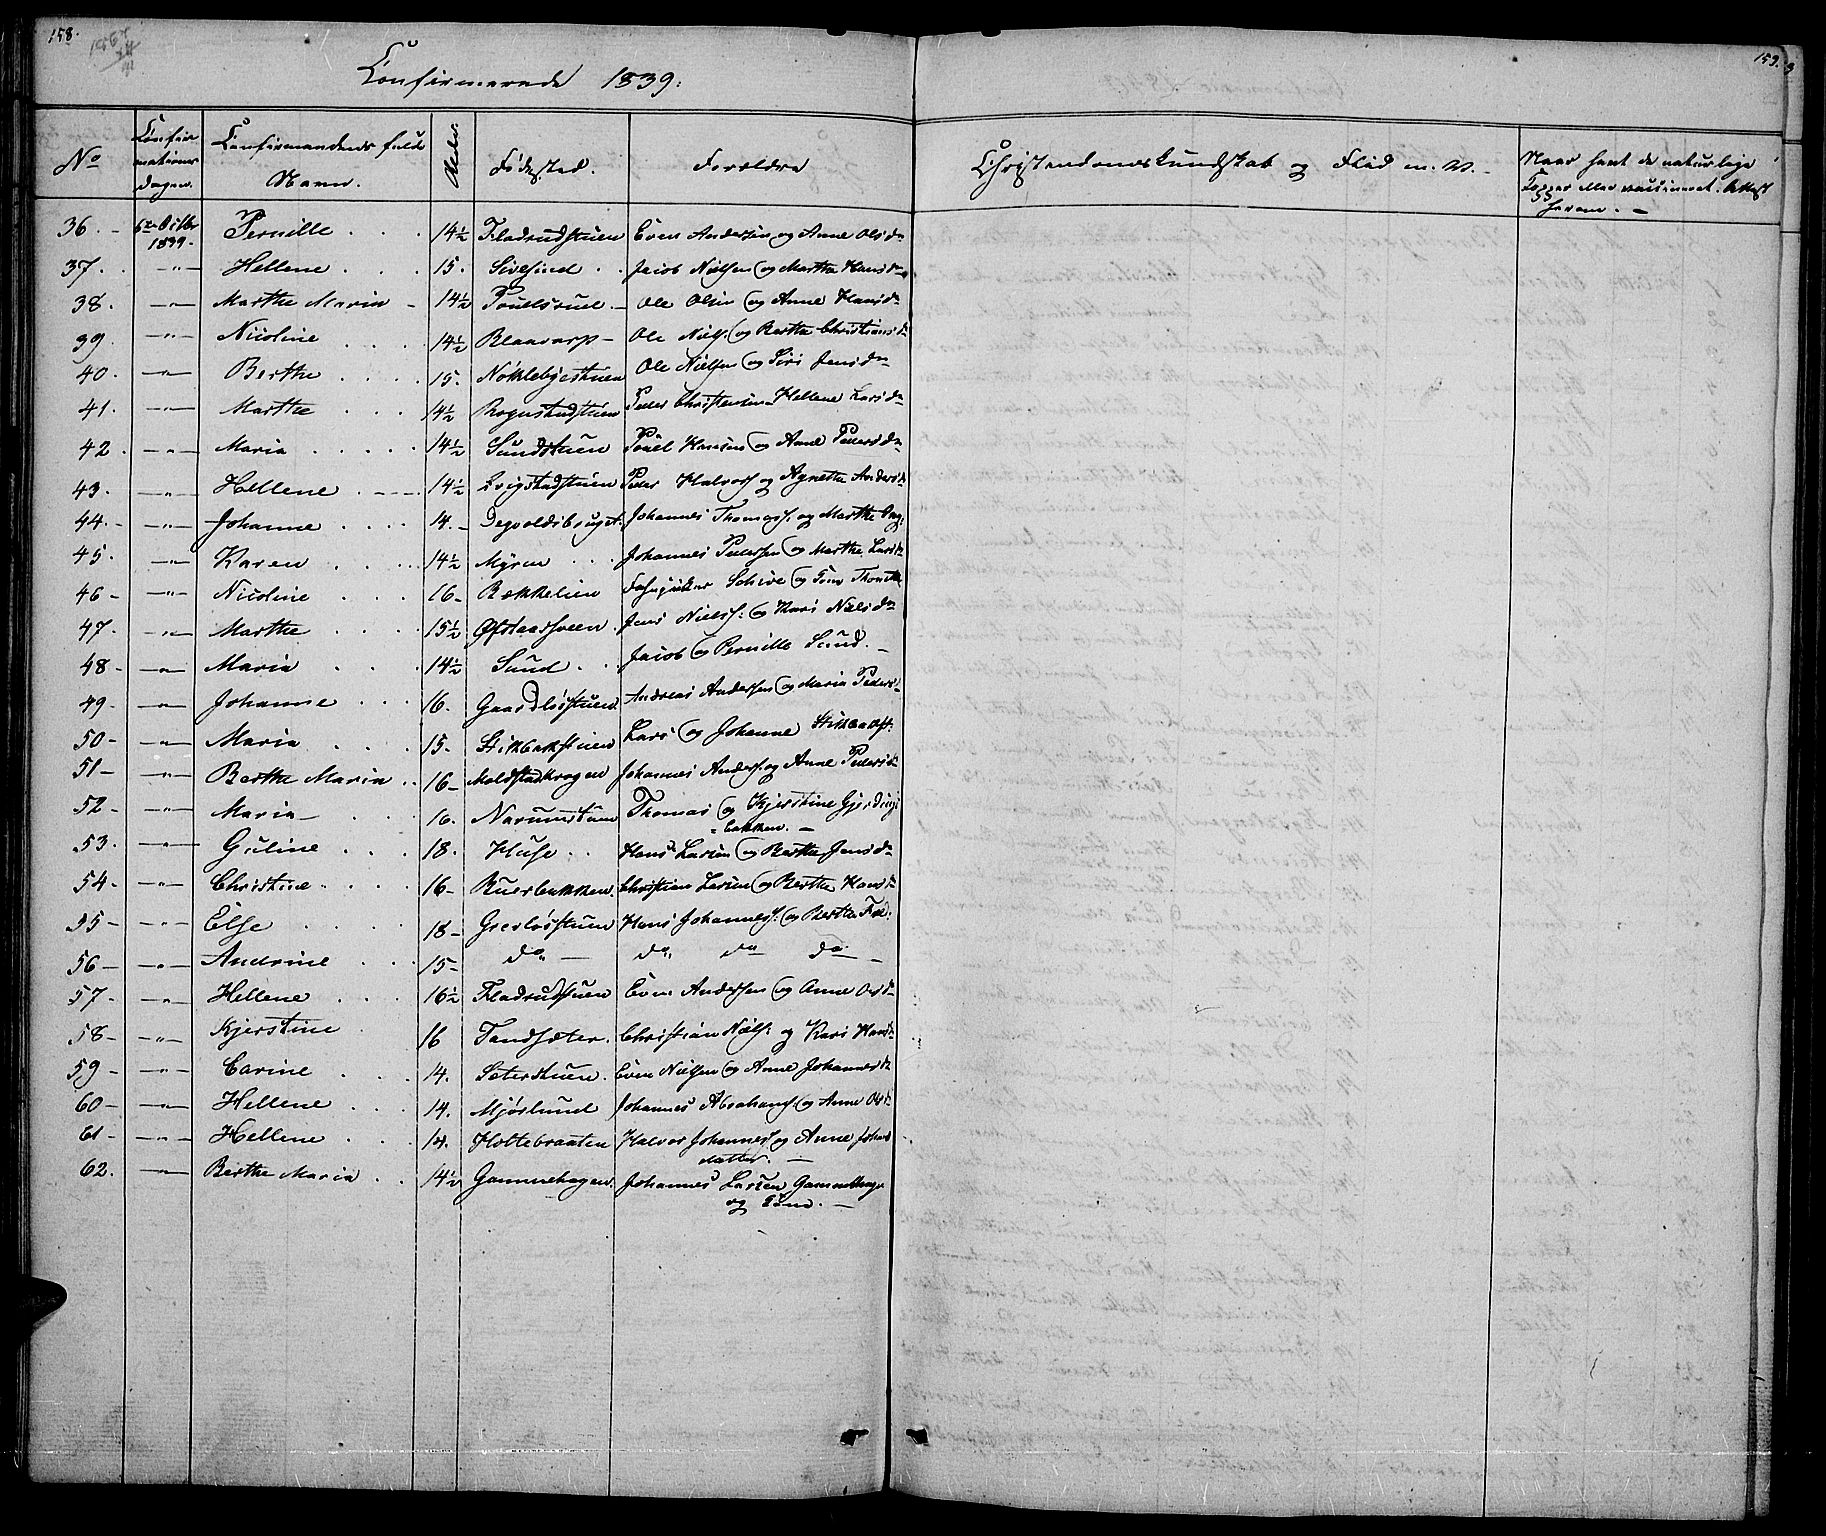 158.
159.
Confirmerede 1839.
No
Confir
mations
Dagen.
Confirmandens fulde
Navn.
Alder.
Födested.
Forældre
Christendomskundskab og Flid m. V.
Naar havt de naturlige
Kopper eller vaccineret. Attest
herom. -
36. - 6te Octbr 1839. Pernille 14½ Fladrudstuen Even Andersen og Anne Olsdr
37. -"- Hellene 15. Sivesind Jacob Nielsen og Marthe Hansdr
38. -"- Marthe Maria 14½ Pouelsrud Ole Olsen og Anne Hansdr
39. -"- Nicoline 14½ Blaavarp Ole Niels. og Berthe Christiansdr
40. -"- Berthe 15. Nöklebyestuen Ole Nielsen og Siri Jensdr
41. -"- Marthe 14½ Rognstadstuen Peder Christensen Hellene Larsdr
42. -"- Maria 14½ Sundstuen Pouel Hansen og Anne Pedersdr
43. -"- Hellene 14½ Qvigstadstuen Peder Halvors. og Agnethe Andersdr
44. -"- Johanne 14. Degvoldsbruget Johannes Thomass. og Marthe
45. -"- Karen 14½ Myren Johannes Pedersen og Marthe Larsdr
46 -"- Nicoline 16 Bækkelien Schive og
47. -"- Marthe 15½ Öfstaasveen Jens Nielss. og Kari Nielsdr
48 -"- Maria 14½ Sund Jacob og Pernille Sund.
49. -"- Johanne 16. Gaardlösstuen Andreas Andersen og Maria Pedersdr
50 -"- Maria 15. Stikbakstuen Lars og Johanne Stikbakst.
51 -"- Berthe Maria 16 Moldstadkrogen Johannes Anders. og Anne Pedersdr
52 -"- Maria 16. Narumstuen Thomas og Kjerstine Gjerdings
bakken.
53. -"- Guline 18. Huse Hans Larsen og Berthe Jensdr
54 -"- Christine 16 Ruerbakken Christian Larsen og Berthe Hansdr
55 -"- Else 18 Grevlösstuen Hans Johanness. og Berthe Fred:
56 -"- Andrine 15 do do do do
57 -"- Hellene 16½ Fladrudstuen Even Andersen og Anne Olsdr
58 -"- Kjerstine 16 Tandsæter. Christian Niels. og Kari Hansdr
59 -"- Carine 14. Seterstuen. Even Nielsen og Anne Johannesdr
60 -"- Hellene 14. Mjöslund Johannes Abrahams. og Anne Olsdr
61 -"- Hellene 14. Holtebraaten Halvor Johanness. og Anne Johans
datter.
62. -"- Berthe Maria 14½ Gammehagen Johannes Larsen Gammelhage
og